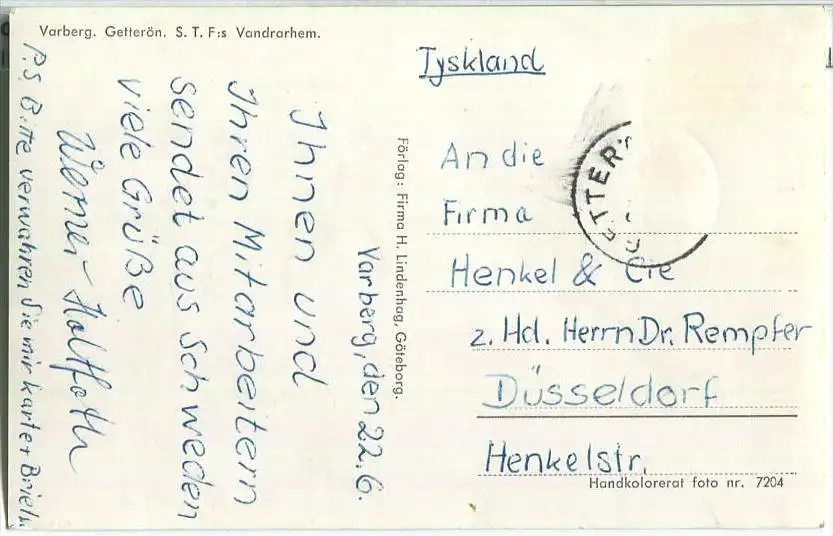 Varberg. Getterön. S. T. F:s Vandrarhem.
Varberg, den 22.6.
Ihnen und
Ihren Mitarbeitern
sendet aus Schweden
viele Grüße
Werner
P.S. Bitte verwahren Sie mir Karte + Briefm
Förlag: Firma H. Lindenhag, Göteborg.
Tyskland
GETTER
An die
Firma
Henkel & Cie
z. Hd. Herrn Dr. Rempfer
Düsseldorf
Henkelstr.
Handkolorerat foto nr. 7204